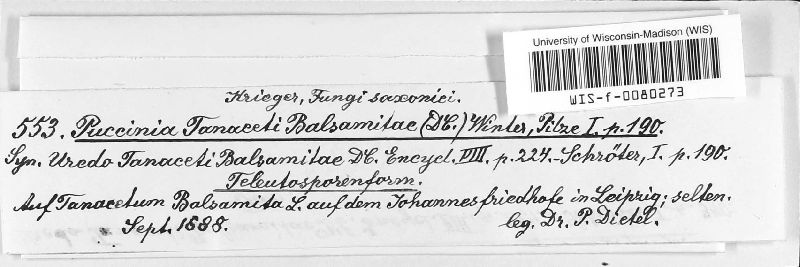 University of Wisconsin-Madison (WIS)
WIS-f-0080273
Krieger, Fungi saxonici.
553. Puccinia Tanaceti Balsamitae (DC.) Winter, Pilze I. p. 190.
Syn. Uredo Tanaceti Balsamitae DC. Encycl. VIII. p. 224.-Schröter, I. p. 190.
Teleutosporenform.
Auf Tanacetum Balsamita L. auf dem Johannesfriedhofe in Leipzig; selten.
Sept. 1888. leg. Dr. P. Dietel.